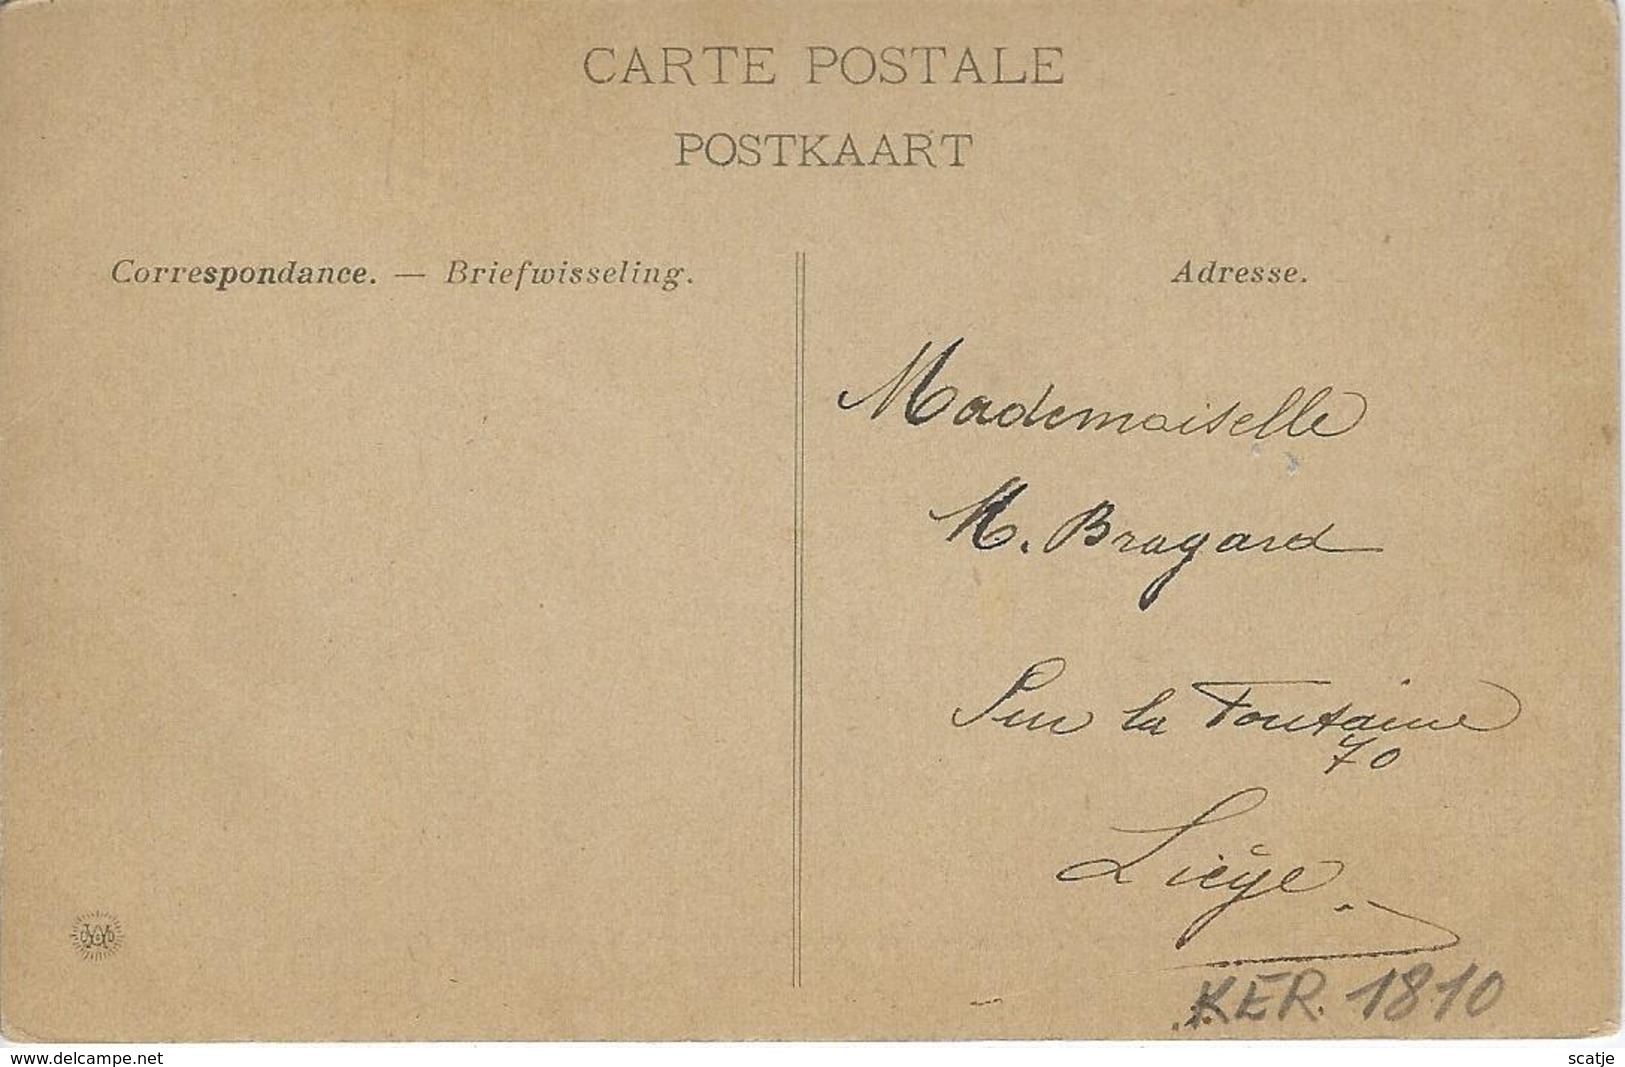 CARTE POSTALE
POSTKAART
Correspondance. — Briefwisseling.
Adresse.
Mademoiselle
M. Bragard
Sur la Fontaine
70
Liège.
KER. 1810
www.delcampe.net
scatje